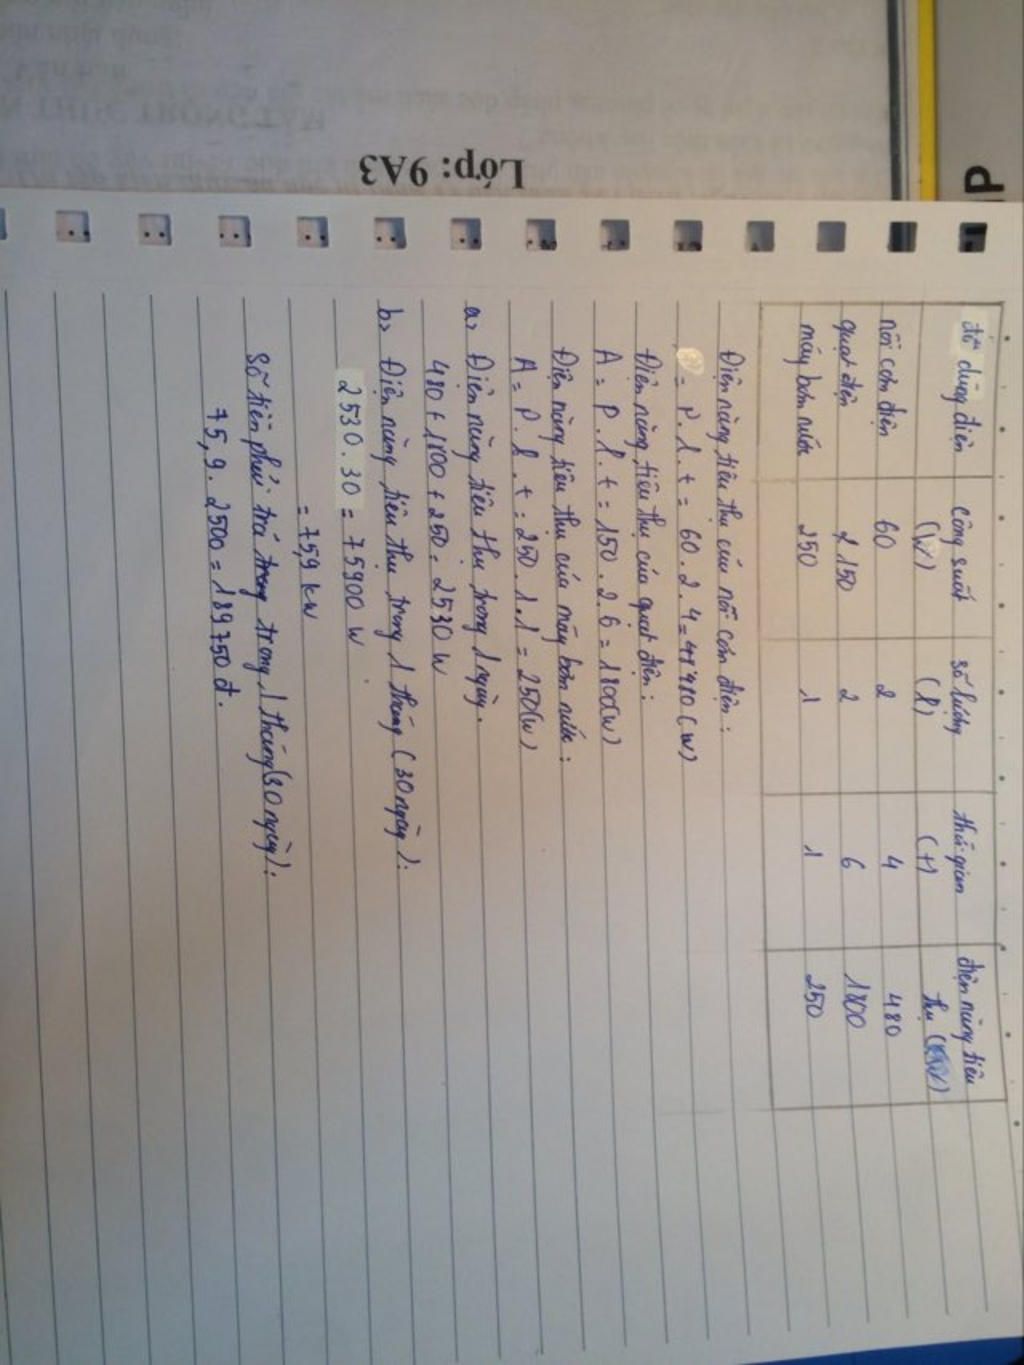 Lớp: 9A3
đồ dùng điện | Công suất (W) | số lượng (l) | thời gian (t) | điện năng tiêu thụ (W)
nồi cơm điện | 60 | 2 | 4 | 480
quạt điện | 150 | 2 | 6 | 1800
máy bơm nước | 250 | 1 | 1 | 250
Điện năng tiêu thụ của nồi cơm điện:
= P. l. t = 60. 2. 4 = 480 (W)
Điện năng tiêu thụ của quạt điện:
A = P. l. t = 150. 2. 6 = 1800(W)
Điện năng tiêu thụ của máy bơm nước:
A = P. l. t = 250. 1. 1 = 250(W)
a, Điện năng tiêu thụ trong 1 ngày.
480 + 1800 + 250 = 2530 W
b, Điện năng tiêu thụ trong 1 tháng (30 ngày):
2530. 30 = 75900 W
= 75,9 kW
Số tiền phải trả trong trong 1 tháng (30 ngày):
75,9. 2500 = 189750 đ.